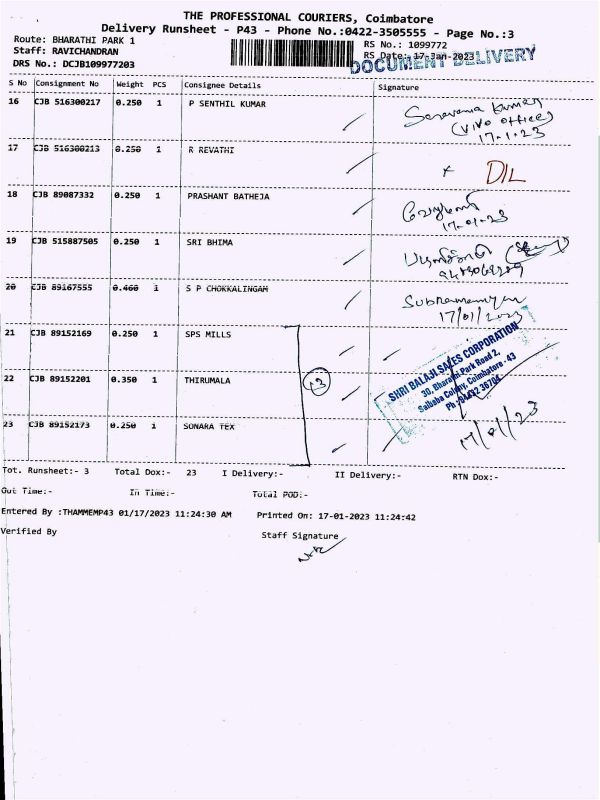 THE PROFESSIONAL COURIERS, Coimbatore
Delivery Runsheet - P43 - Phone No.:0422-3505555 - Page No.:3
Route: BHARATHI PARK 1
RS No.: 1099772
Staff: RAVICHANDRAN
RS Date: 17-Jan-2023
DOCUMENT DELIVERY
DRS No.: DCJB109977203
S No Consignment No Weight PCS Consignee Details Signature
16 CJB 516300217 0.250 1 P SENTHIL KUMAR
Saravana Kumar
(VIVO office)
17-1-23
17 CJB 516300213 0.250 1 R REVATHI
x D/L
18 CJB 89087332 0.250 1 PRASHANT BATHEJA
17-01-23
19 CJB 515887505 0.250 1 SRI BHIMA
20 CJB 89167555 0.460 1 S P CHOKKALINGAM
Subramaniyan
17/01/2023
21 CJB 89152169 0.250 1 SPS MILLS
22 CJB 89152201 0.350 1 THIRUMALA
3
SHRI BALAJI SALES CORPORATION
30, Bharathi Park Road 2,
Saibaba Colony, Coimbatore - 43
17/01/23
23 CJB 89152173 0.250 1 SONARA TEX
Tot. Runsheet:- 3 Total Dox:- 23 I Delivery:- II Delivery:- RTN Dox:-
Out Time:- In Time:- Total POD:-
Entered By :THAMMEMP43 01/17/2023 11:24:30 AM Printed On: 17-01-2023 11:24:42
Verified By Staff Signature